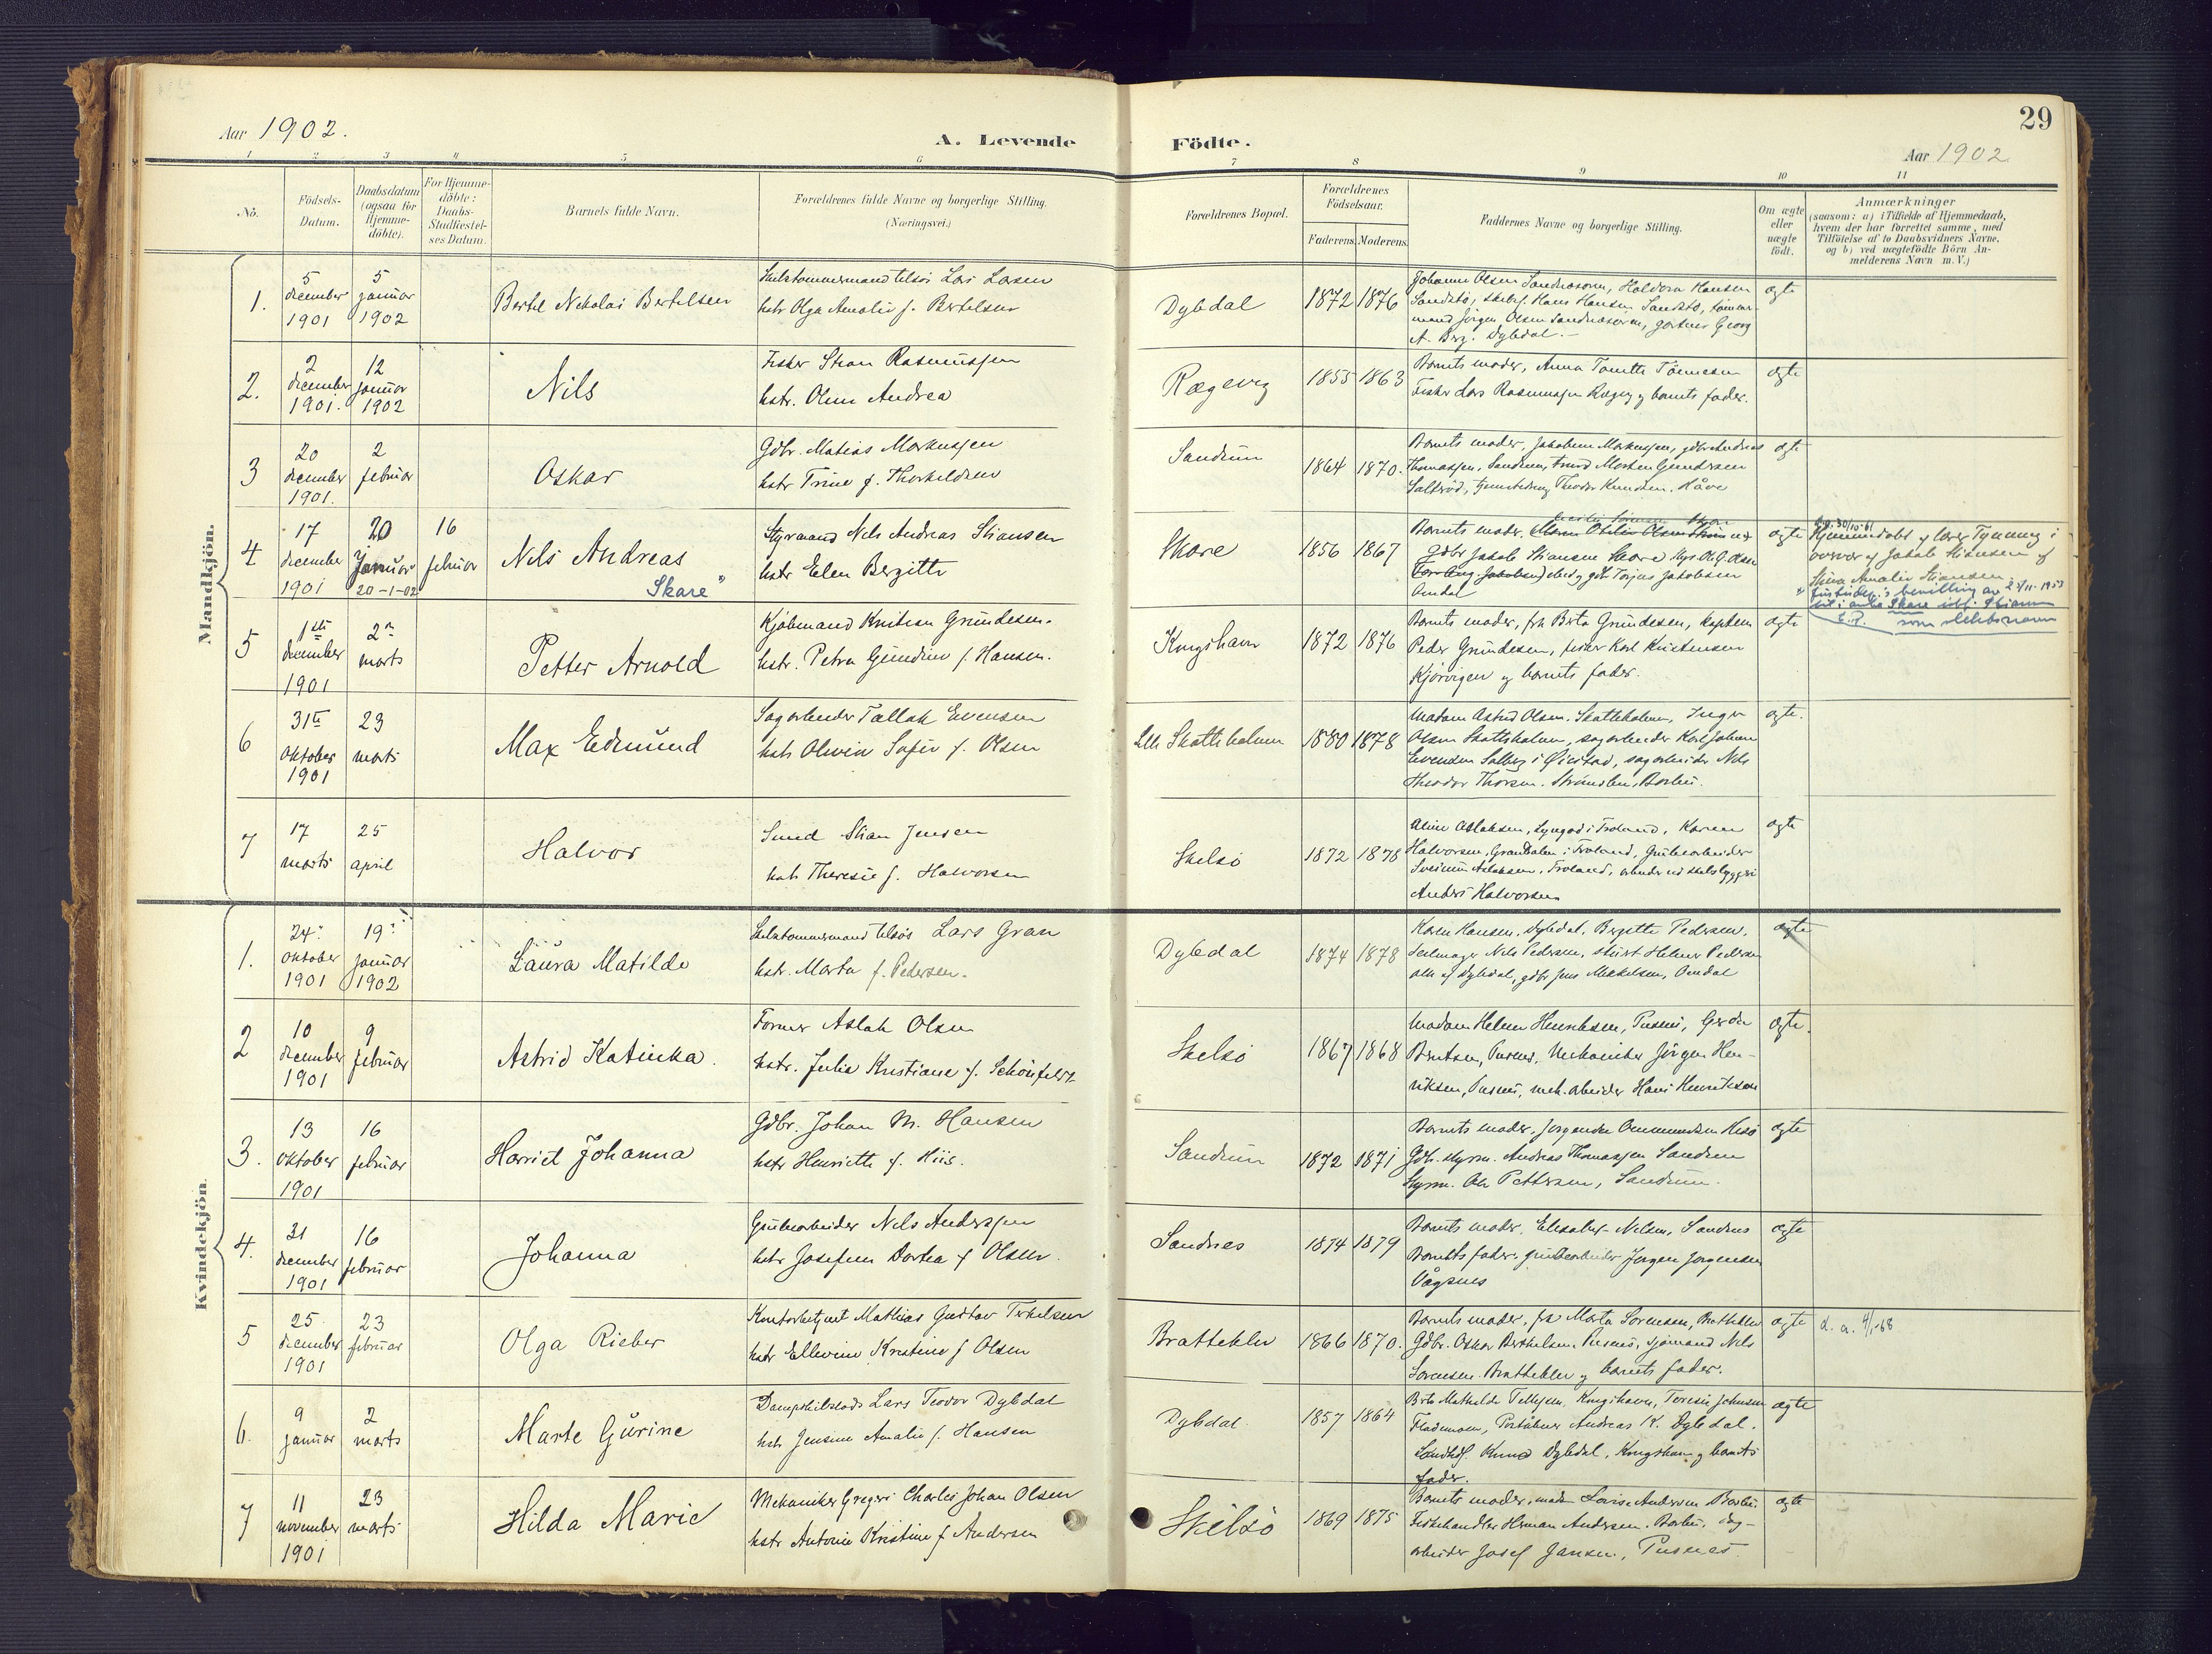 29
Aar 1902.
A. Levende Födte.
Aar 1902
1 2 3 4 5 6 7 8 9 10 11
No.
Födsels-
Datum.
Daabsdatum
(ogsaa for
Hjemme-
döbte).
For Hjemme-
döbte:
Daabs-
Stadfæstel-
ses Datum.
Barnets fulde Navn.
Forældrenes fulde Navne og borgerlige Stilling.
(Næringsvei.)
Forældrenes Bopæl.
Forældrenes
Födselsaar.
Faderens. Moderens.
Faddernes Navne og borgerlige Stilling.
Om ægte
eller
uægte
födt.
Anmærkninger
(saasom: a) i Tilfælde af Hjemmedaab,
hvem der har forrettet samme, med
Tilföielse af to Daabsvidners Navne.
og b) ved uægtefödte Börn An-
melderens Navn m. V.)
Mandkjön.
1.
5 december 1901
5 januar 1902
Bertel Nekolai Bertelsen
Lars Larsen
hstr Olga Amalie f. Bertelsen
Dybdal
1872 1876
Johanne Olsen Haldora Hansen
Sandstö, Hans Hansen Sandstö, tømmer-
mand Jörgen Olsen gartner Georg
A. Berg. Dybdal.
ægte
2.
2 december 1901.
12 januar 1902
Nils
Fisker Stian Rasmussen
hstr. Oline Andrea
Rægevig
1855 1863
Barnets moder, Anna Tomette Tönnesen
Fisker Lars Rasmussen Rægevig og barnets fader.
ægte
3
20 december 1901.
2 februar
Oskar
Gdbr. Matias Markussen
hstr Trine f. Thorkildsen
Sandum
1864 1870.
Barnets moder, Jakobine Markussen, gdbr Andreas
Thomassen, Sandum, Morten Gundersen
Salteröd, Theodor Knudsen. Håve
ægte
4
17 december 1901
20 Januar
20-1-02
16 februar
Nils Andreas
Skare"
Styrmand Nils Andreas Stiansen
hstr Elen Bergitte
Skare
1856 1867
Barnets moder.
gdbr Jakob Stiansen Skare styr. O. G. Olsen
gdb Torjus Jakobsen
Omdal
ægte
d.d. 30/10-61
Hjemmedøbt af lærer Tynning i
overvær af Jakob Stiansen og
Stina Amalie Stiansen
bevilling av 23/11-1953
til å anta Skare
som slektsnavn
5
1ste december 1901
2n marts
Petter Arnold
Kjöbmand Kristian Gundersen.
hstr. Petra Gundine f. Hansen.
Kongshavn
1872 1876
Barnets moder, frk Berta Gundersen, kaptein
Peder Gundersen, fisker Karl Kristensen
Kjörvigen og barnets fader.
ægte
6
31te oktober 1901
23 marts
Max Edmund
Sagarbeider Tallak Evensen
hstr Olivia Sofie f. Olsen
Lille Skotteholmen
1880 1878
Madam Astrid Olsen. Skotteholmen, Inga
Olsen Skotteholmen, sagarbeider Karl Johan
Evensen Solberg i Öiestad, sagarbeider Nils
Theodor Thorsen. Barbu.
ægte.
7
17 marts
25 april
Halvor
Smed Stian Jensen
hstr Theresie f. Halvorsen
Skilsö
1872 1878
Aline Aslaksen, i Froland, Karen
Halvorsen, i Froland, Grubearbeider
Aslaksen. Froland, arbeider ved skibsbyggeri
Anders Halvorsen
ægte
Kvindekjön.
1.
24. oktober 1901
19. januar 1902
Laura Matilde
Lars Gran
hstr. Marta f. Pedersen.
Dybdal
1874 1878
Karen Hansen, Dybdal, Bergitte Pedersen,
Seilmager Nils Pedersen, Helmer Pedersen
alle af Dybdal, gdbr Jens Mikkelsen, Omdal
ægte
2
10 december 1901
9 februar
Astrid Katinka.
Former Aslak Olsen
hstr. Julie Kristiane f. Schönfeldt
Skilsö
1867 1868
Madam Helene Henriksen, Pusnes, Gerda
Berntsen, Pusnes, Jörgen Hen-
riksen, Pusnes, mek. arbeider Hans Henriksen
ægte.
3.
13 oktober 1901
16 februar
Harriet Johanna
Gdbr. Johan M. Hansen
hstr Henriette f. Hiis.
Sandum
1872 1871
Barnets moder, Jorgine Ommundsen
Gdb. styrm. Andreas Thomassen Sandum
Styrm. Ole Pettersen, Sandum.
ægte
4.
31 december 1901
16 februar
Johanna
Grubearbeider Nils Anderssen
hstr Josefine Dortea f Olsen.
Sandnes
1874 1879
Barnets moder. Elisabet Nilsen, Sandnes
Barnets fader. grubearbeider Jörgen Jörgensen
Vågsnes
ægte
5
25 december 1901
23 februar
Olga Rieber
Kontorbetjent Mathias Gustav Terkelsen
hstr Ellevine Kristine f Olsen
Brattekleiv
1866 1870.
Barnets moder, frk Marta Sørensen, Brattekleiv
Gdbr. Oskar Berthelsen. Pusnes, sjömand Nils
Sørensen. Brattekleiv og barnets fader.
ægte
d. a. 4/1-68
6.
9 januar
2 marts
Marte Gurine
Lars Teodor Dybdal
hstr Jensine Amalie f. Hansen
Dybdal.
1857 1864
Mathilde Tellefsen, Kongshavn, Teresie Johnsen
Flademoen, Andreas K. Dybdal.
Knud Dybdal, Kongshavn og barnets
fader.
ægte
7
11 november 1901
23 marts
Hilda Marie
Mekaniker Gregers Charles Johan Olsen
hstr Antonie Kristine f Andersen
Skilsö
1869 1875
Barnets moder, madm Lovise Andersen Barbu.
Fiskehandler Herman Andersen. Barbu. dag-
arbeider Josef Jansen, Pusnes.
ægte